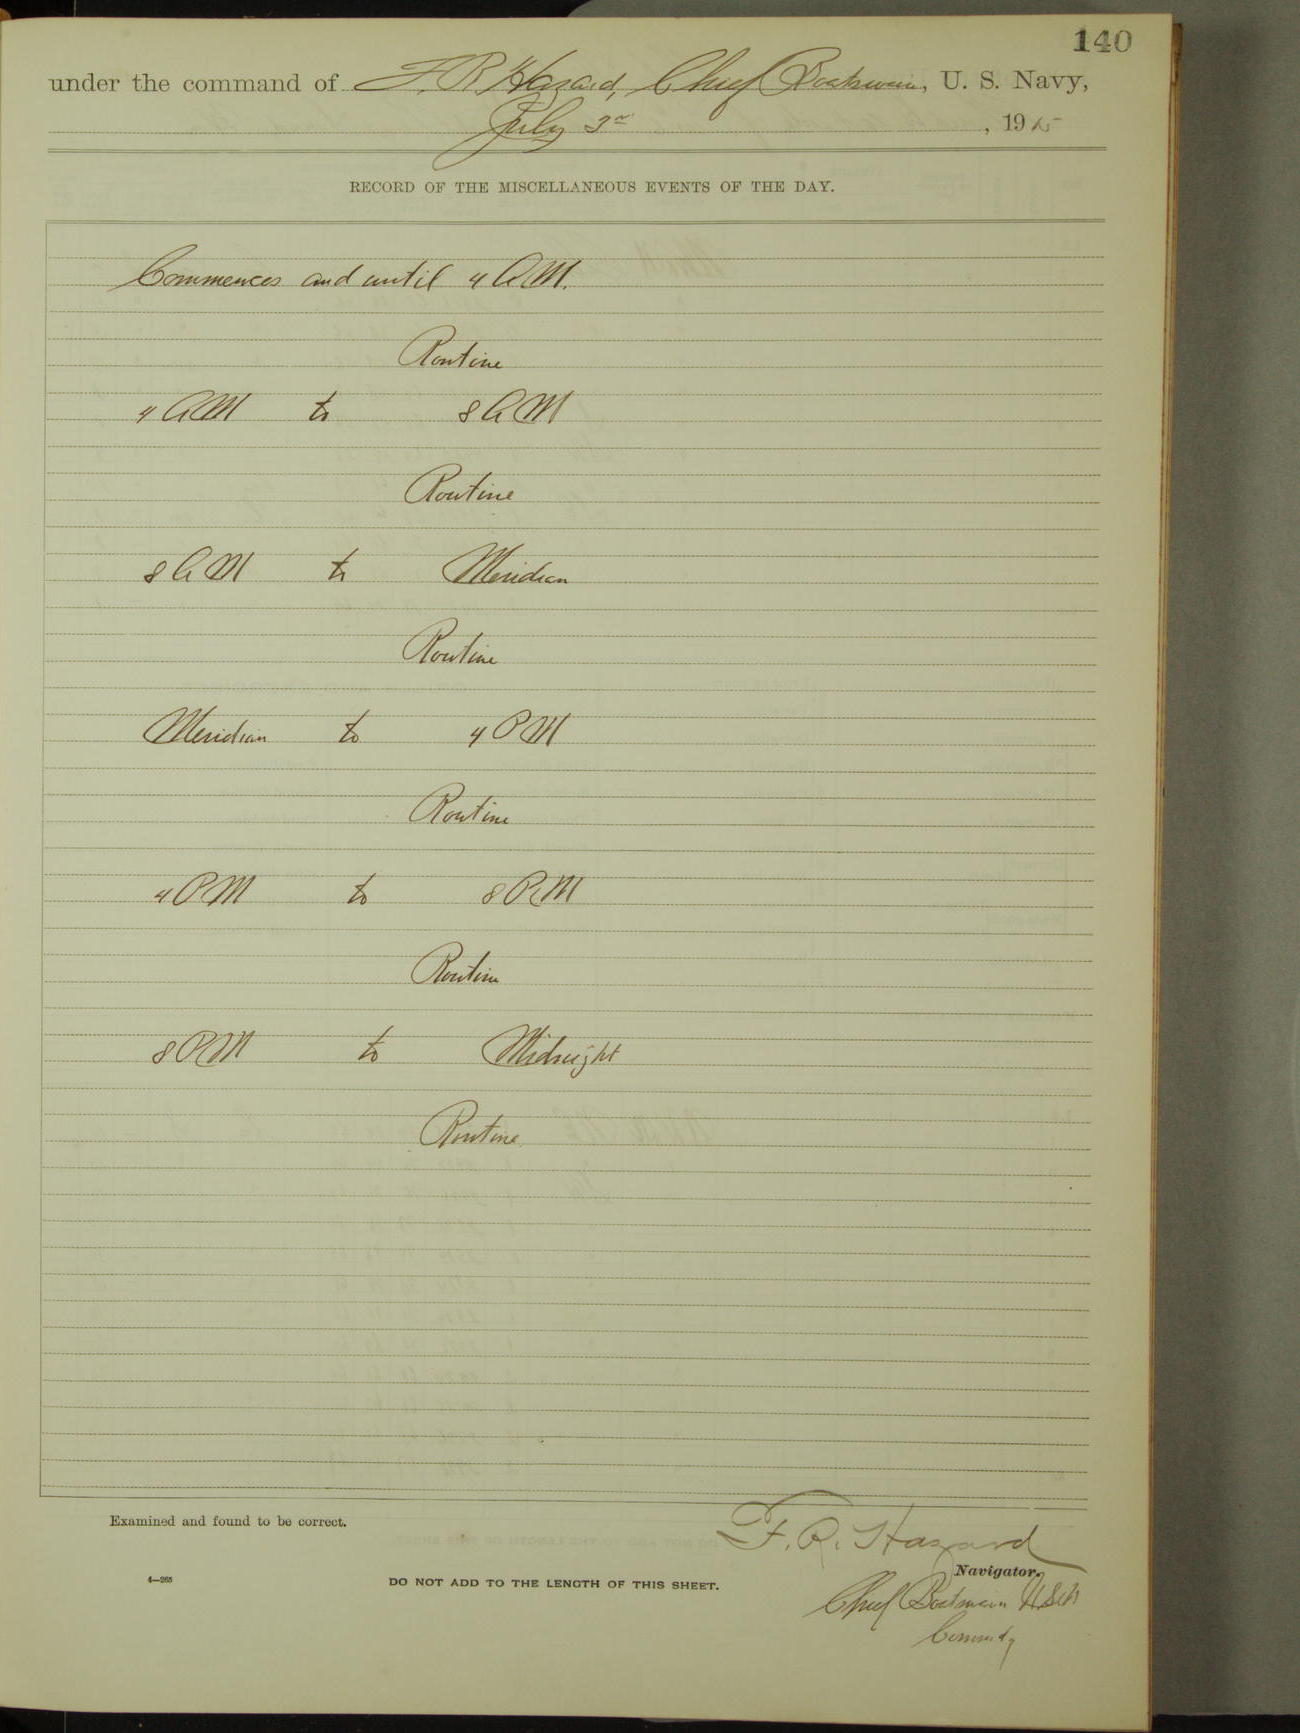 140
under the command of F. R. Hazard, Chief Boatswain, U. S. Navy,
July 3rd, 1915
RECORD OF THE MISCELLANEOUS EVENTS OF THE DAY.
Commences and until 4 AM.
Routine
4 AM to 8 AM
Routine
8 AM to Meridian
Routine
Meridian to 4 PM
Routine
4 PM to 8 PM
Routine
8 PM to Midnight
Routine
Examined and found to be correct.
F. R. Hazard
Navigator.
4—265 DO NOT ADD TO THE LENGTH OF THIS SHEET.
Chief Boatswain USN
Commdg